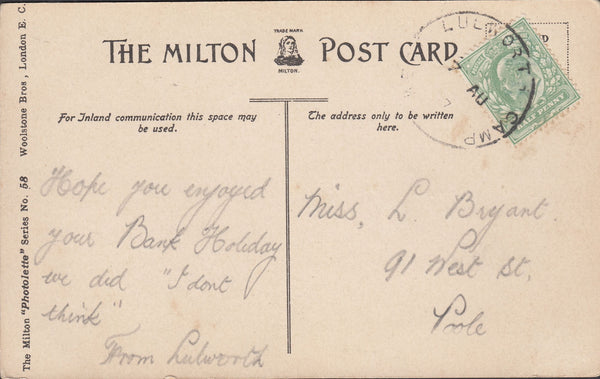 THE MILTON POST CARD
TRADE MARK
MILTON.
For Inland communication this space may
be used.
The address only to be written
here.
LULWORTH CAMP
AU
HALF PENNY
Hope you enjoyed
your Bank Holiday
we did "I dont
think"
From Lulworth
Miss, L. Bryant.
91 West St,
Poole
The Milton "Photolette" Series No. 58 Woolstone Bros., London E. C.